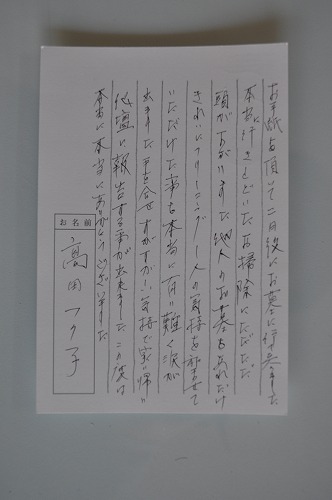 お手紙を頂いて二日後にお墓に行って来ました
本当に行きとどいたお掃除にただただ
頭がさがいます 他人のお墓もあれだけ
きれいにクリーニング 人の気持を
いただけた事を本当に有り難く涙が
出ました 手を合せすがすがしい気持で家に帰り
仏壇に報告する事が出来ました この度は
本当に本当にありがとうございました
お名前
高田フク子